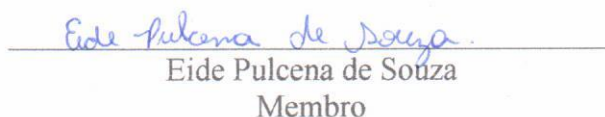 Eide Pulcena de Souza.
Eide Pulcena de Souza
Membro